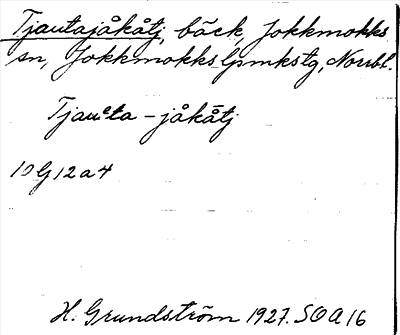 Tjautajåkåtj, bäck, Jokkmokks
sn, Jokkmokks lpmkstg, Norrbl.
Tjauᵋta-jåkā̊tj
10 G 12 a 4
H. Grundström 1927. SOA 16